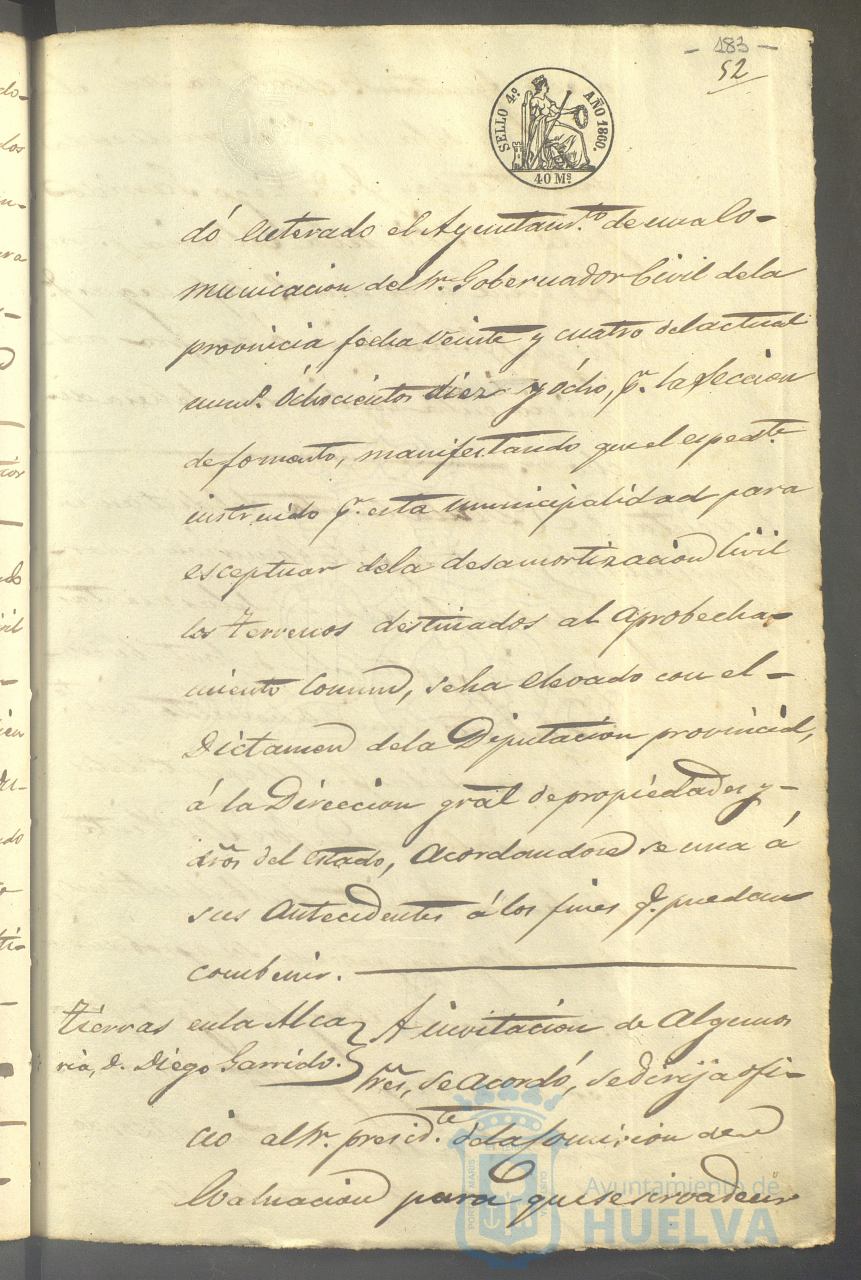 - 183 -
52
SELLO 4.º AÑO 1860.
40 Ms.
dó enterado el Ayuntam.to de una Co-
municacion del Sr. Gobernador Civil dela
provincia fecha veinte y cuatro del actual
num.º Ochocientos diez y ócho, p.r la Seccion
de fomento, manifestando que el espedte.
instruido p.r esta municipalidad para
esceptuar dela desamortizacion Civil
los terrenos destinados al aprobecha-
miento Comun, seha elevado con el -
Dictamen dela Diputacion provincial,
á la Direccion gral de propiedades y -
dros del estado, Acordandose se una á
sus Antecedentes á los fines q. puedan
combenir.
Tierras enla Alca
ria, d. Diego Garrido.
A invitacion de Algunos
Sres, se acordó, se dirija ofi-
cio al Sr. presid.te dela Comision de
Evaluacion para que se sirva decir
Ayuntamiento de
HUELVA